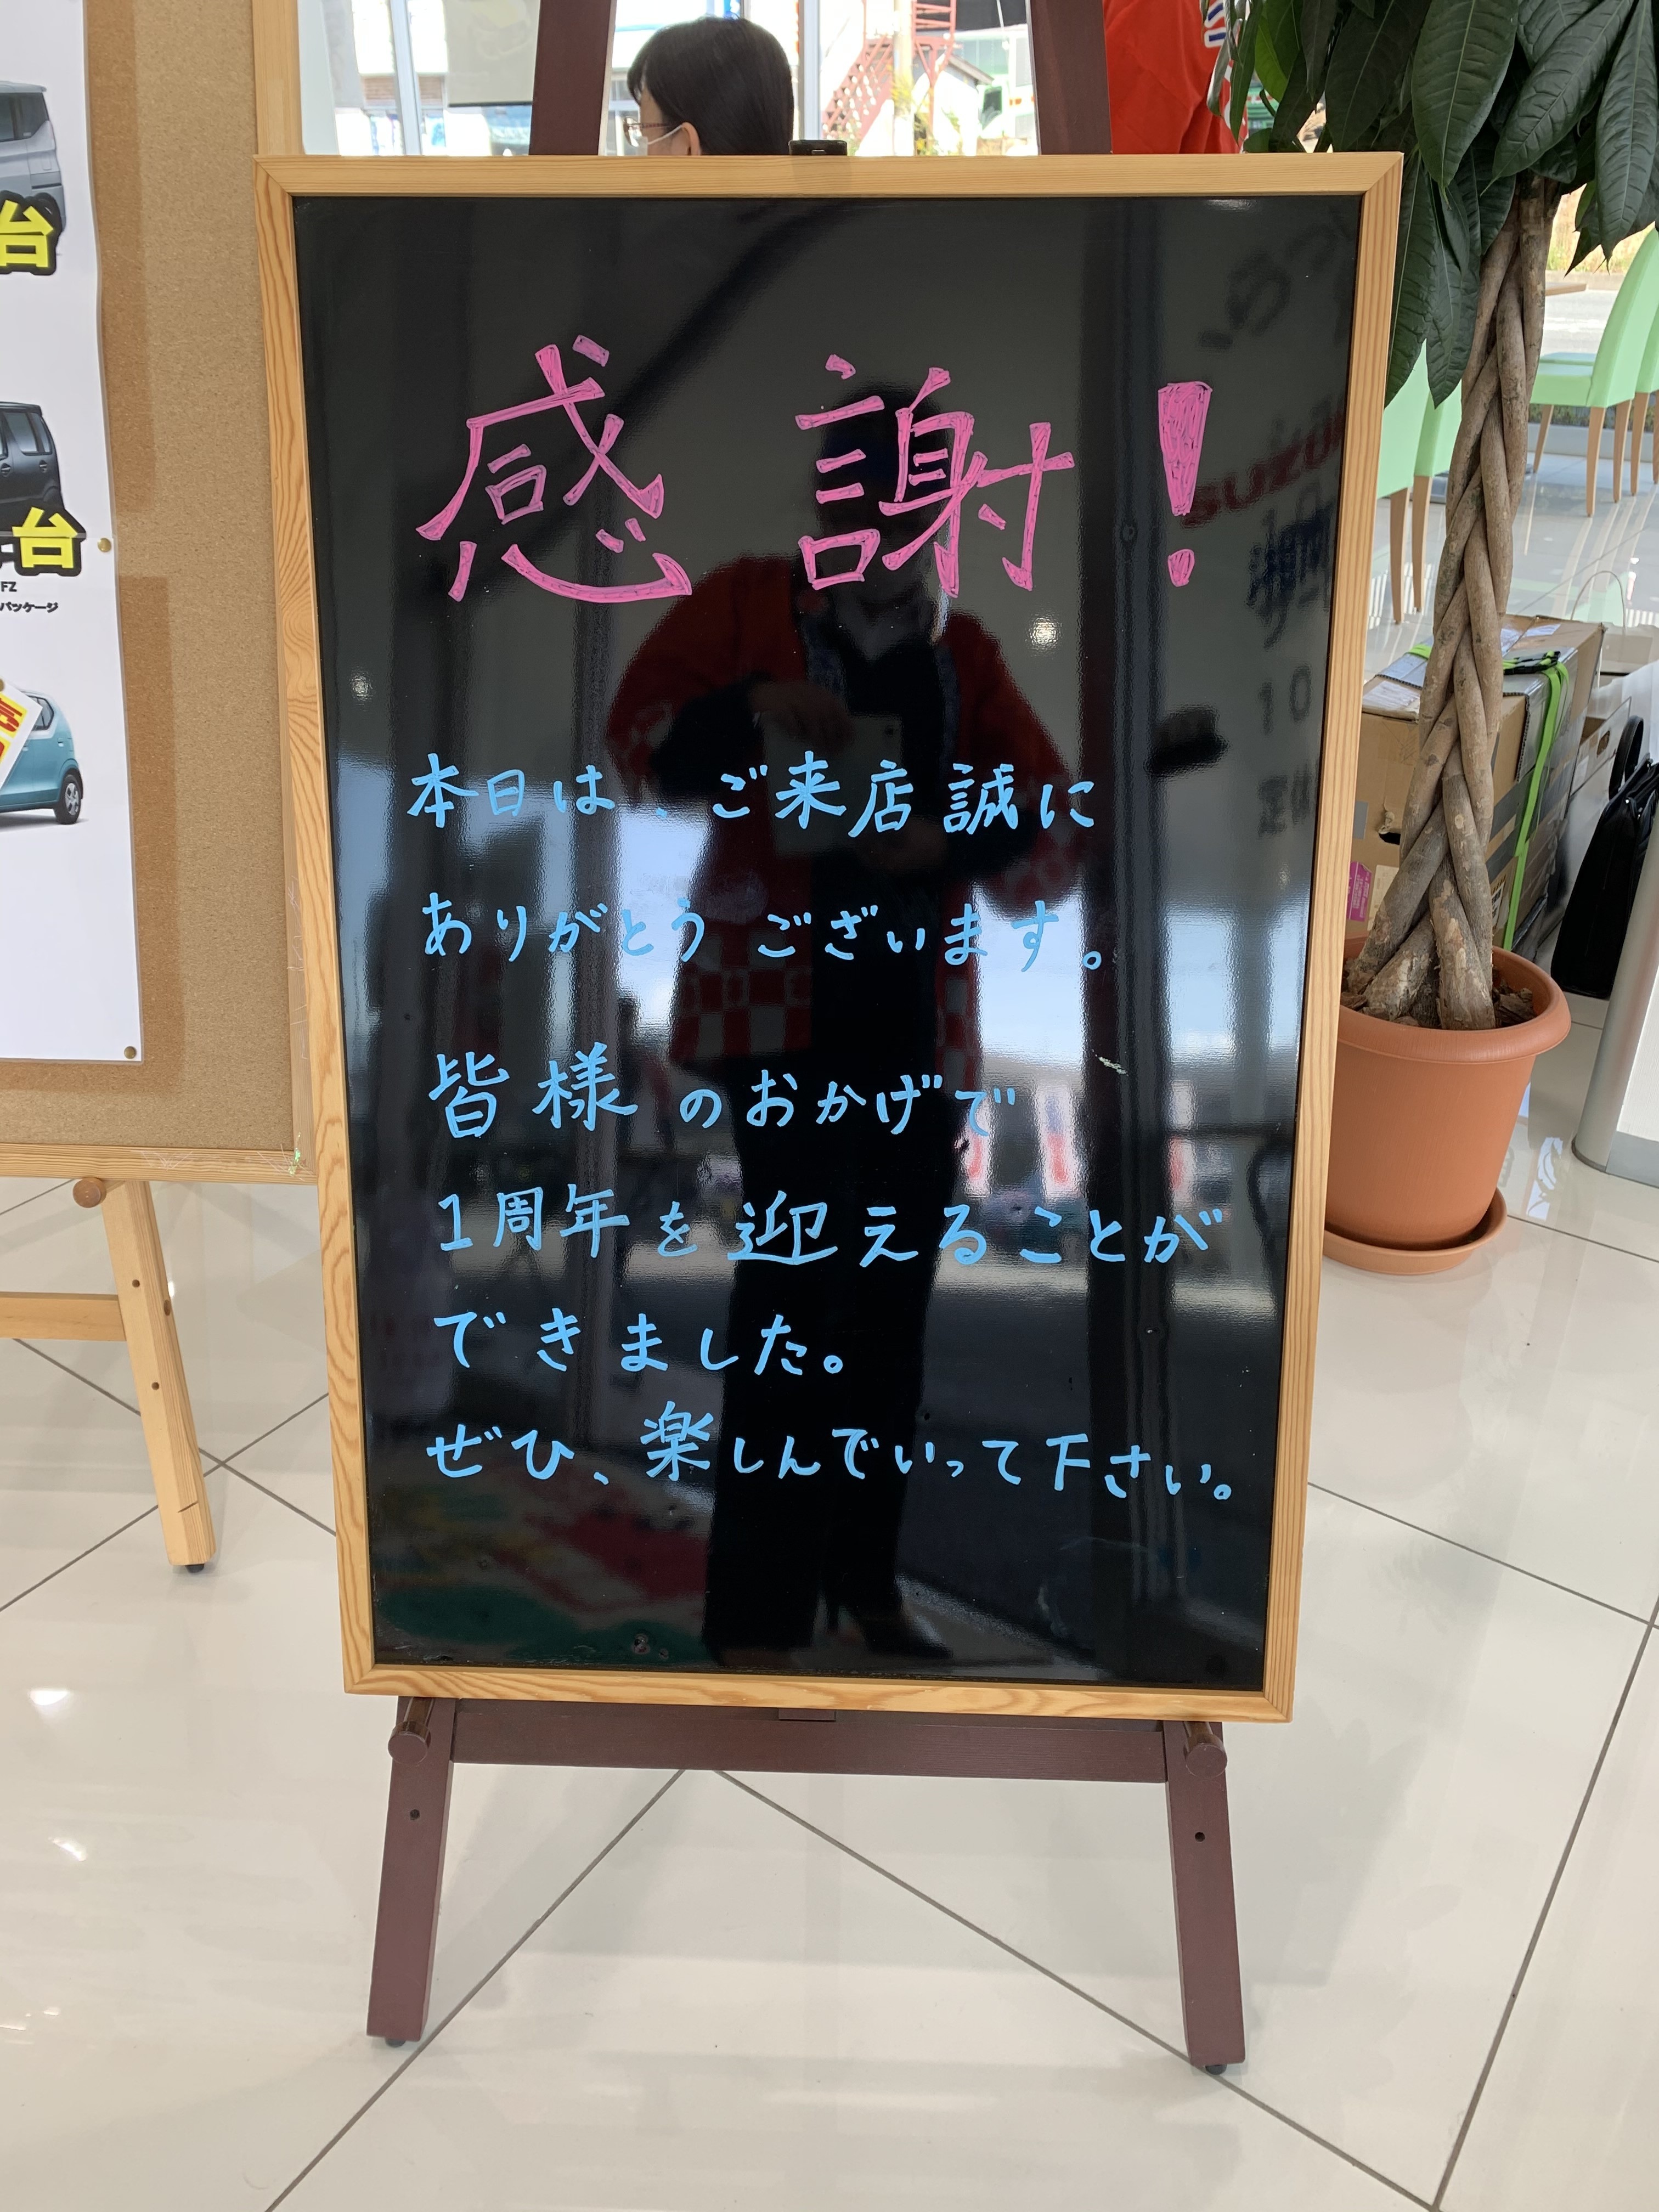 感謝!
本日は、ご来店誠に
ありがとうございます。
皆様のおかげで
1周年を迎えることが
できました。
ぜひ、楽しんでいって下さい。
台
台
FZ
パッケージ